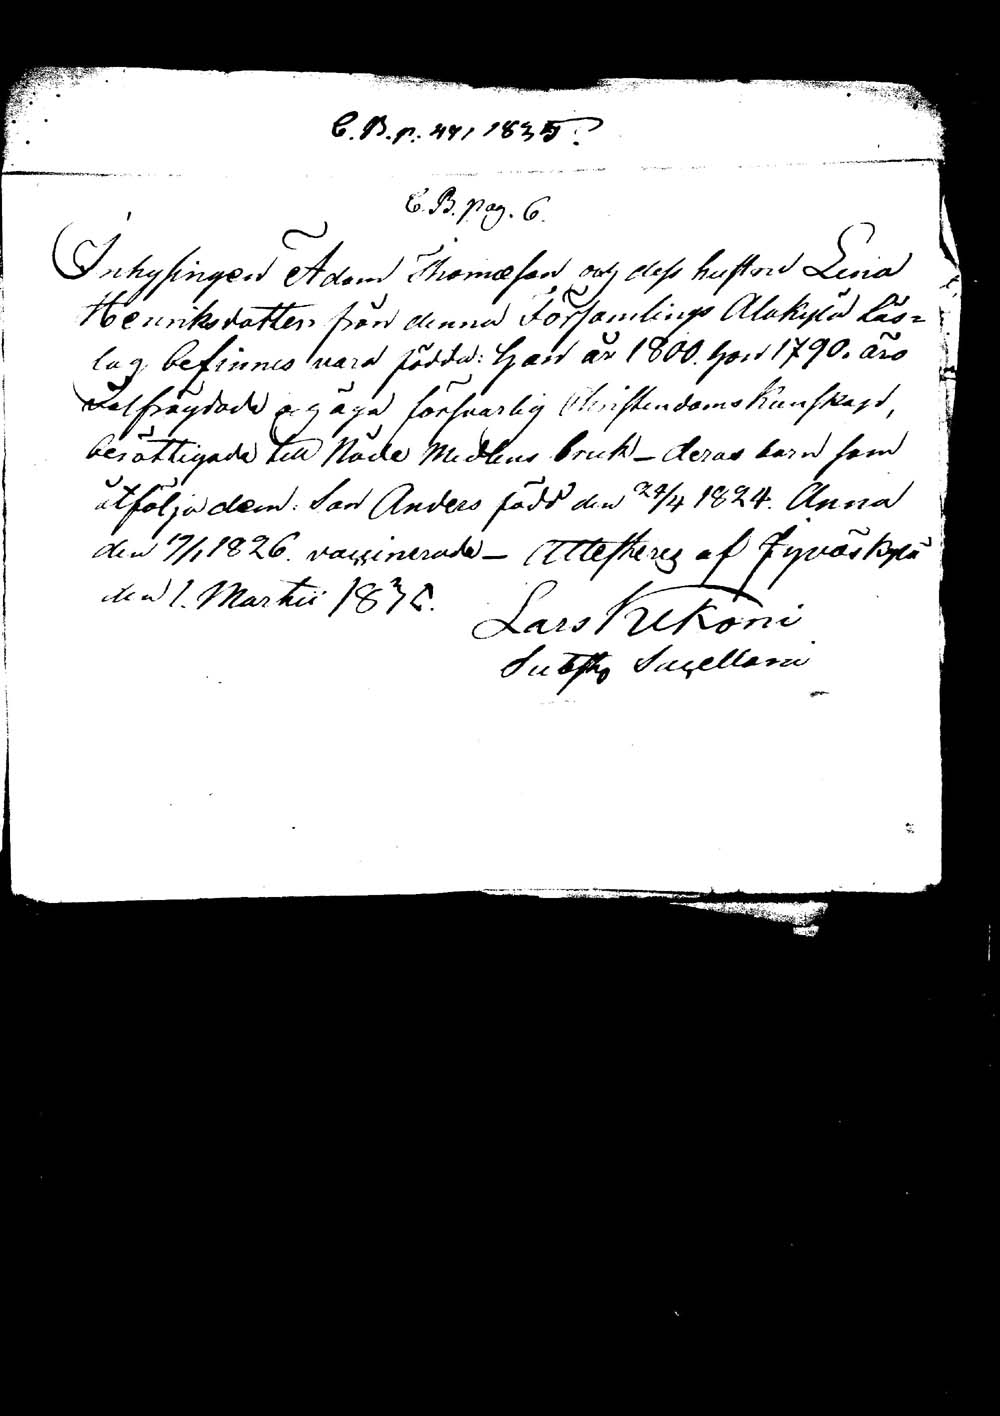 C.B.p: 471 1835?
C.B. pag. 6.
Inhysingen Adam Thomæson och dess hustru Lena
Henriksdotter från denna Församlings Alakylä Läs=
lag befinnes vara födde: han år 1800. hon 1790. äro
välfrägdade och äga försvarlig Christendoms Kunskap,
berättigade till Nåde Medlens bruk – deras barn som
åtfölja dem: Son Anders född den 24/4 1824. Anna
den 17/1 1826. vaccinerade – Attesteras af Jyväskylä
den 1. Martii 183
Lars Kukoni
Sacellani